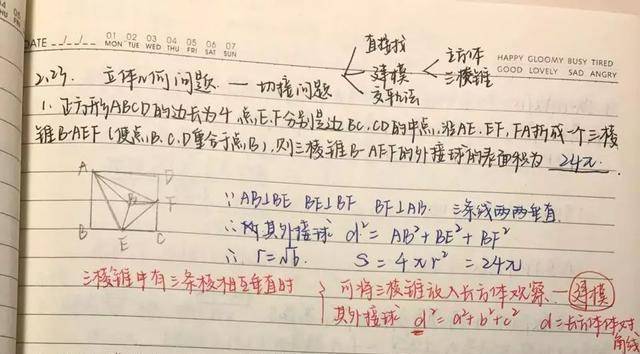 DATE / / 01 02 03 04 05 06 07
MON TUE WED THU FRI SAT SUN
HAPPY GLOOMY BUSY TIRED
GOOD LOVELY SAD ANGRY
2.23. 立体几何问题 — 切接问题
直接找
建模
交轨法
长方体
三棱锥
1. 正方形ABCD的边长为4,点E、F分别是边BC、CD的中点,沿AE、EF、FA折成一个三棱
锥B-AEF(使点B、C、D重合于点B),则三棱锥B-AEF的外接球的表面积为 24π.
A D
B F
B E C
∵ AB⊥BE BE⊥BF BF⊥AB. 三条线两两垂直
∴ 其外接球 d²=AB²+BE²+BF²
∴ r=√6. S=4πr²=24π
三棱锥中有三条棱相互垂直时
可将三棱锥放入长方体观察 — 建模
其外接球 d²=a²+b²+c² d=长方体体对
角线